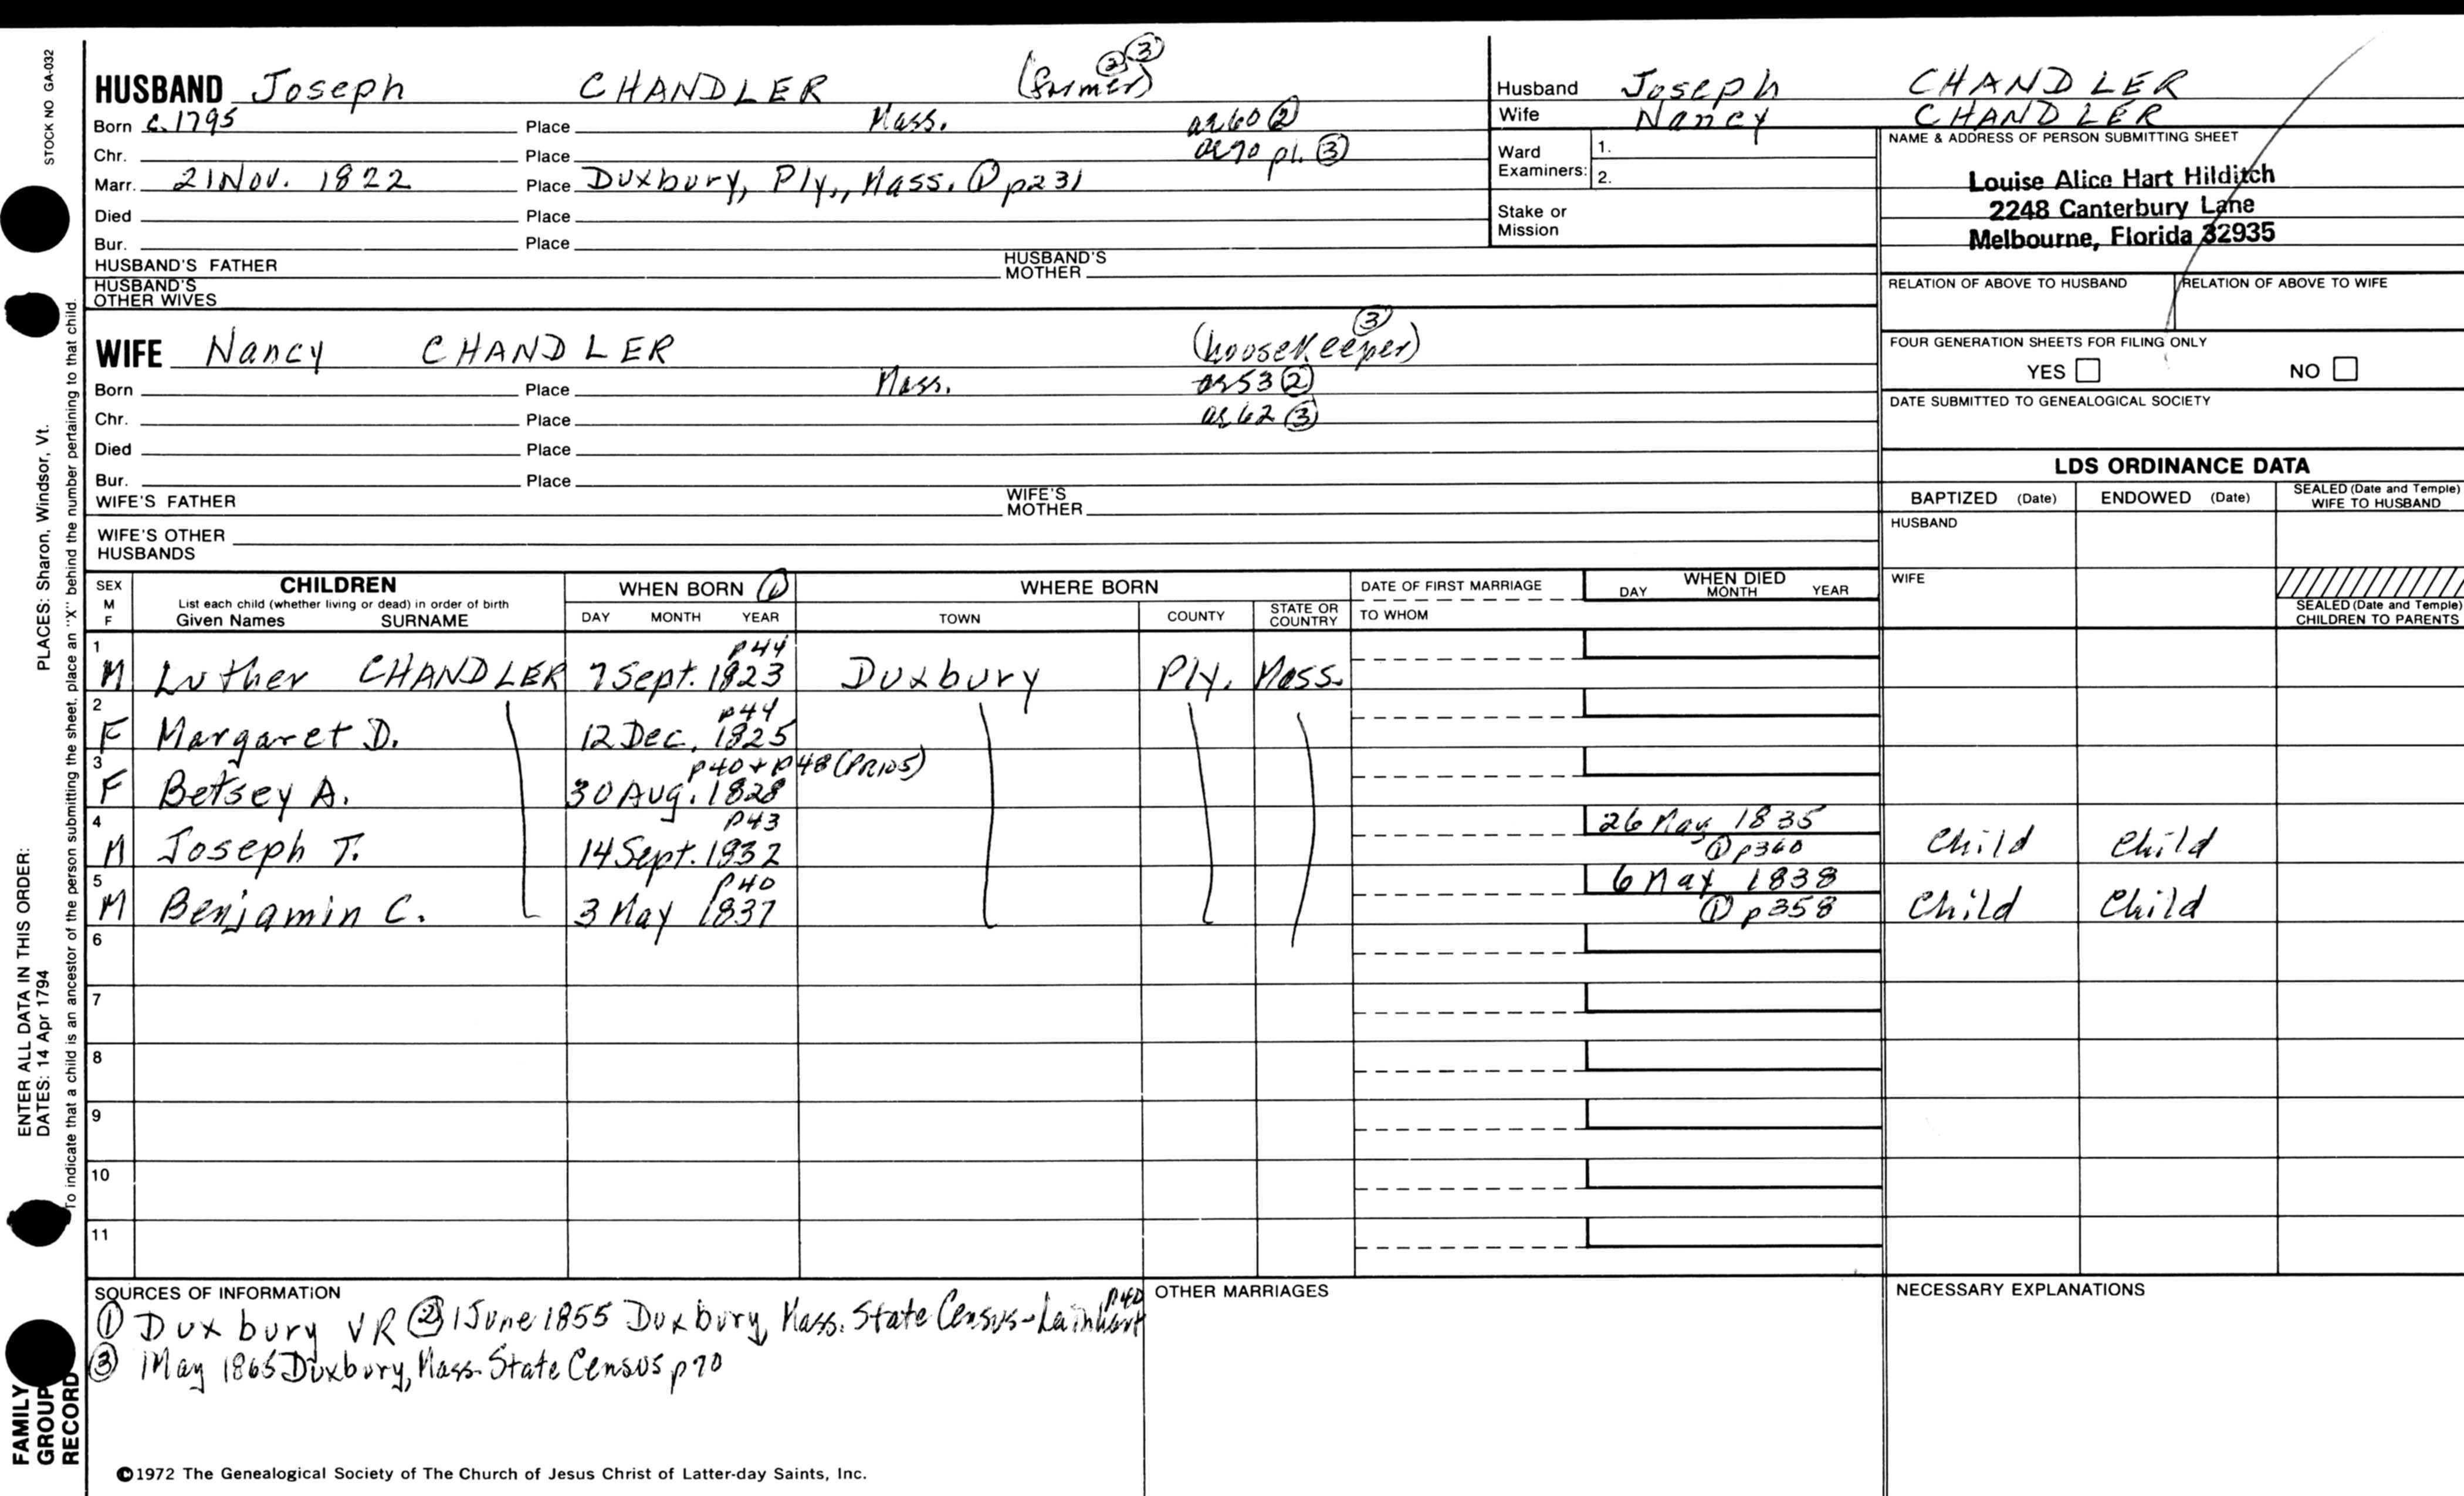 STOCK NO GA-032
HUSBAND Joseph CHANDLER (farmer) ② ③
Born c. 1795 Place Mass. ae 60 ②
Chr. Place ae 70 p1. ③
Marr. 21 Nov. 1822 Place Duxbury, Ply., Mass. ① p231
Died Place
Bur. Place
HUSBAND'S FATHER HUSBAND'S MOTHER
HUSBAND'S OTHER WIVES
Husband Joseph CHANDLER
Wife Nancy CHANDLER
Ward Examiners: 1.
2.
Stake or Mission
NAME & ADDRESS OF PERSON SUBMITTING SHEET
Louise Alice Hart Hilditch
2248 Canterbury Lane
Melbourne, Florida 32935
RELATION OF ABOVE TO HUSBAND RELATION OF ABOVE TO WIFE
FOUR GENERATION SHEETS FOR FILING ONLY
YES NO
DATE SUBMITTED TO GENEALOGICAL SOCIETY
WIFE Nancy CHANDLER (housekeeper) ③
Born Place Mass. ae 53 ②
Chr. Place ae 62 ③
Died Place
Bur. Place
WIFE'S FATHER WIFE'S MOTHER
WIFE'S OTHER HUSBANDS
LDS ORDINANCE DATA
BAPTIZED (Date) ENDOWED (Date) SEALED (Date and Temple) WIFE TO HUSBAND
HUSBAND
WIFE
SEALED (Date and Temple) CHILDREN TO PARENTS
SEX M F
CHILDREN
List each child (whether living or dead) in order of birth
Given Names SURNAME
WHEN BORN ①
DAY MONTH YEAR
WHERE BORN
TOWN COUNTY STATE OR COUNTRY
DATE OF FIRST MARRIAGE
TO WHOM
WHEN DIED
DAY MONTH YEAR
1 p44
M Luther CHANDLER 7 Sept. 1823 Duxbury Ply. Mass.
2 p44
F Margaret D. 12 Dec. 1825
3 p40 + p48 (PR105)
F Betsey A. 30 Aug. 1828
4 p43 26 May 1835
M Joseph T. 14 Sept. 1832 ① p360 Child Child
5 p40 6 May 1838
M Benjamin C. 3 May 1837 ① p358 Child Child
6
7
8
9
10
11
SOURCES OF INFORMATION
① Duxbury VR ② 1 June 1855 Duxbury, Mass. State Census - Lainhart p40
③ 1 May 1865 Duxbury, Mass. State Census p70
OTHER MARRIAGES
NECESSARY EXPLANATIONS
©1972 The Genealogical Society of The Church of Jesus Christ of Latter-day Saints, Inc.
ENTER ALL DATA IN THIS ORDER: PLACES: Sharon, Windsor, Vt.
DATES: 14 Apr 1794
To indicate that a child is an ancestor of the person submitting the sheet, place an "X" behind the number pertaining to that child.
FAMILY GROUP RECORD